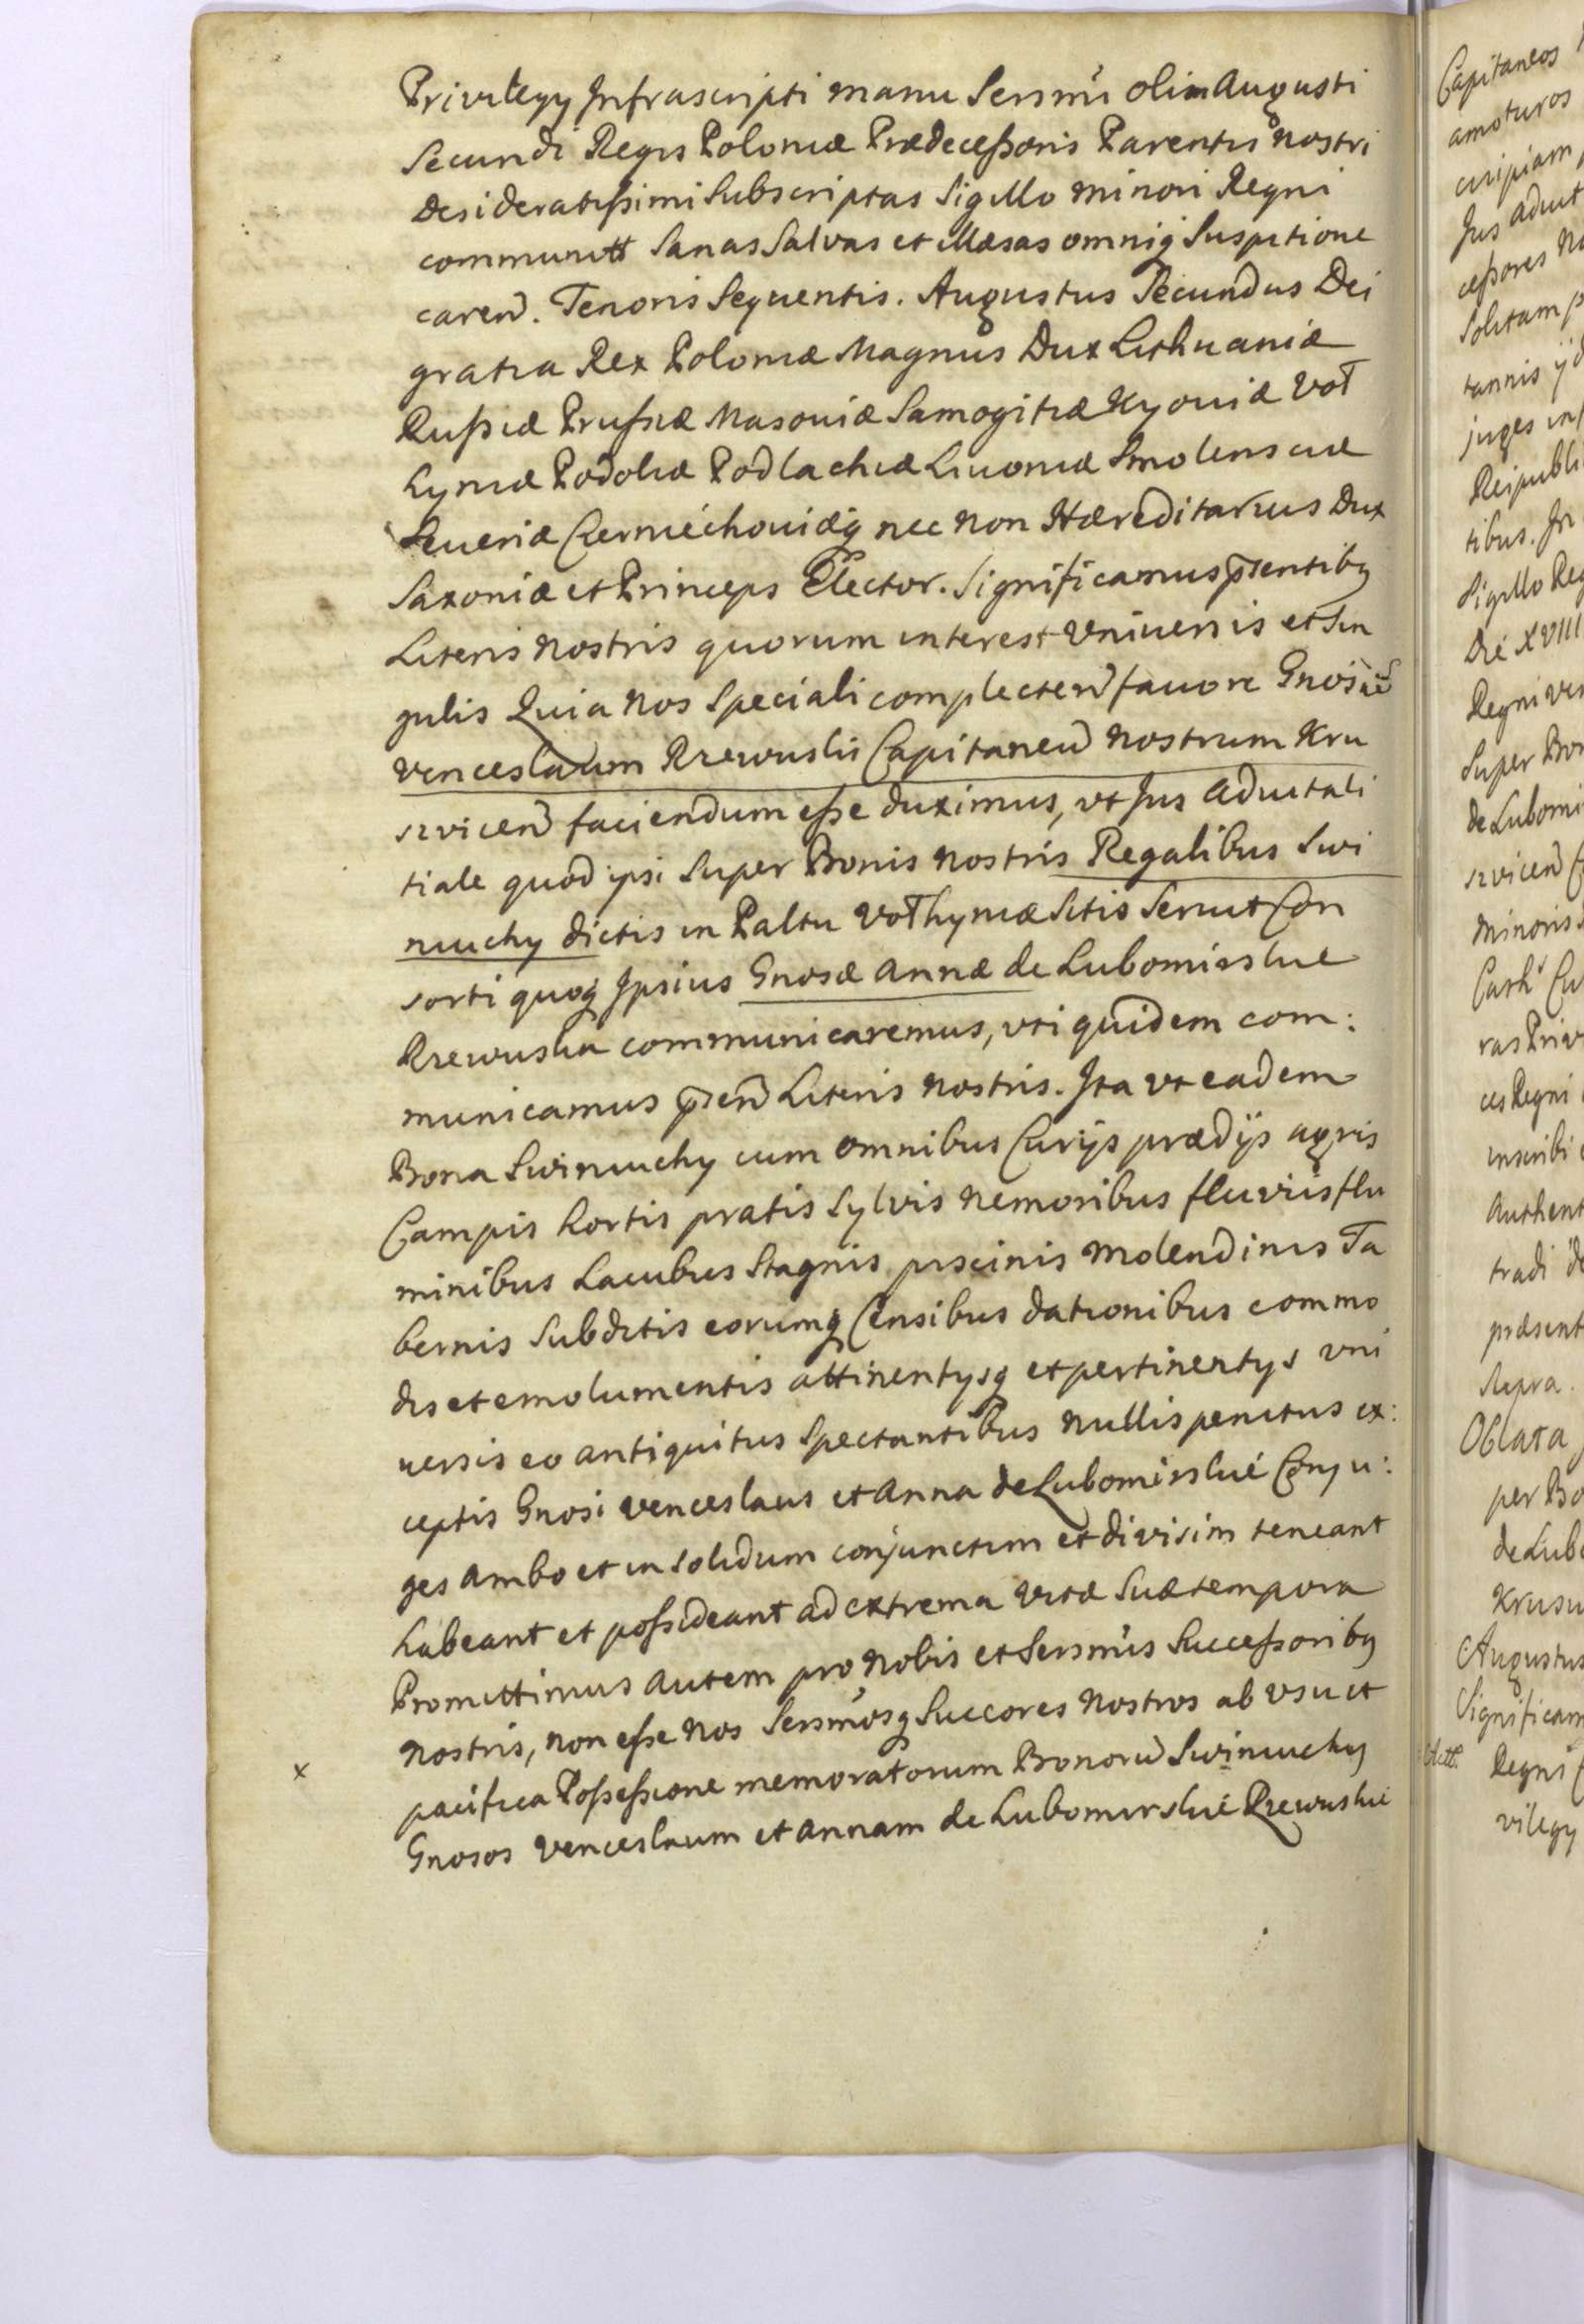 Privilegy Infrascripti manu Sersmi olim Augusti
Secundi Regis Poloniæ Prædecessoris Parentis nostri
Desideratissimi Subscriptas Sigillo minori Regni
communitt Sanas Salvas et illæsas omniq Suspitione
caren. Tenoris Sequentis. Augustus Secundus Dei
gratia Rex Poloniæ Magnus Dux Lithuaniæ
Russiæ Prussiæ Masoviæ Samogitiæ Kyouiæ Vol
hyniæ Podoliæ Podlachiæ Livoniæ Smolensciæ
Seueriæ Czerniechouiæq nec non Hæreditarius Dux
Saxoniæ et Princeps Elector. Significamus psentibq
Literis Nostris quorum interest Vniuersis et Sin
gulis Quia Nos Speciali complecten fauore Gnosu
Venceslaum Rzewuski Capitaneu Nostrum Kru
szvicen faciendum esse duximus, vt Jus Aduitali
tiale quod ipsi Super Bonis Nostris Regalibus Swi
niuchy dictis in Paltu Volhyniæ Sitis Seruit Con
sorti quoq Ipsius Gnosæ Annæ de Lubomirskie
Rzewuska communicaremus, vti quidem com:
municamus psen Literis Nostris. Ita vt eadem
Bona Swiniuchy cum omnibus Curijs prædijs agris
Campis hortis pratis Sylvis Nemoribus fluviis flu
minibus Lacubus Stagnis piscinis Molendinis Ta
bernis Subditis eorumq Censibus dationibus commo
dis et emolumentis attinentysq et pertinentys vni
uersis eo antiquitus Spectantibus Nullis penitus ex:
ceptis Gnosi Venceslaus et Anna de Lubomirskié Conju:
ges Ambo et in solidum conjunctim et divisim teneant
habeant et possideant ad extrema Vitæ Suæ tempora
Promittimus Autem pro Nobis et Sersmis Successoribq
Nostris, non esse Nos Sersmosq Succores Nostros ab vsu et
x pacifica Possessione memoratorum Bonoru Swiniuchy
Gnosos Venceslaum et Annam de Lubomirskié Rzewuskie
Capitaneos
amoturos
cuipiam
Jus aduit
cessores
Solitam
tannis
juges
Reipubli
tibus. In
Sigillo Reg
Die XVIII
Regni
Super Bon
de Lubomi
szvicen
minoris
Cu
ras Priv
ces Regni
inscribi
Authent
tradi
præsent
Supra.
Oblata
per Bo
de Lubo
Krusw
Augustus
Significam
Regni
vilegy